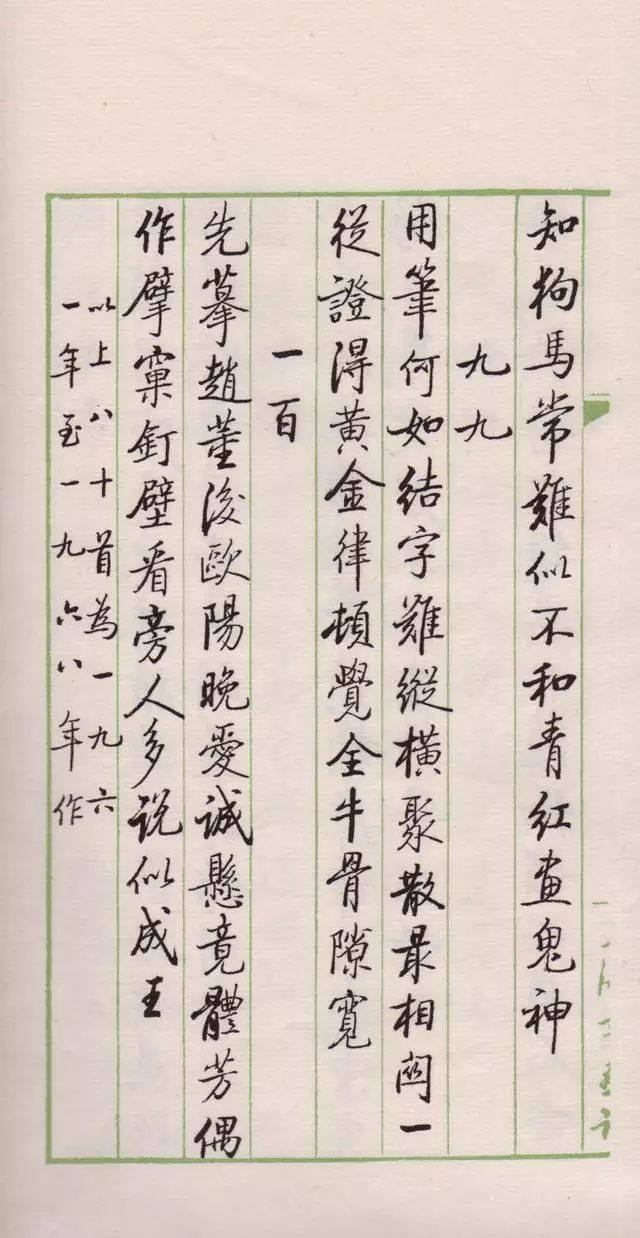 知狗馬常難似不和青红畫鬼神
九九
用筆何如結字難縱橫聚散最相関一
從證得黃金律頓覺全牛骨隙寬
一百
先摹趙董後歐陽晚愛誠懸竟體芳偶
作擘窠釘壁看旁人多説似成王
以上八十首為一九六
一年至一九六八年作